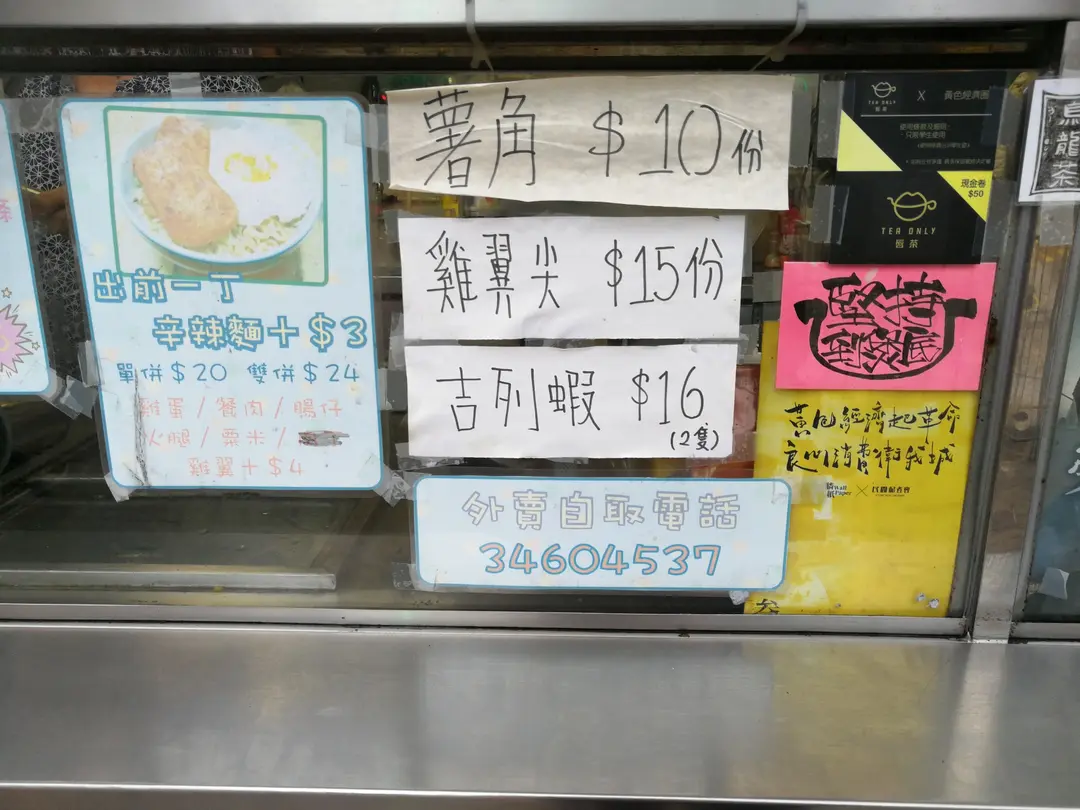 出前一丁
辛辣麵+$3
單併$20 雙併$24
雞蛋/餐肉/腸仔
火腿/粟米/
雞翼+$4
薯角 $10份
雞翼尖 $15份
吉列蝦 $16
(2隻)
外賣自取電話
34604537
TEA ONLY X 黃色經濟圈
現金卷
$50
TEA ONLY
堅持
到發底
黃色經濟起革命
良心消費衛我城
烏龍茶